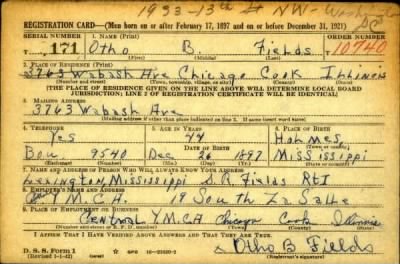 1933-13th St NW-
REGISTRATION CARD—(Men born on or after February 17, 1897 and on or before December 31, 1921)
SERIAL NUMBER 1. NAME (Print) ORDER NUMBER
171 Otho B. Fields 10740
(First) (Middle) (Last)
2. PLACE OF RESIDENCE (Print)
3763 Wabash Ave Chicago Cook Illinois
(Number and street) (Town, township, village, or city) (County) (State)
[THE PLACE OF RESIDENCE GIVEN ON THE LINE ABOVE WILL DETERMINE LOCAL BOARD
JURISDICTION; LINE 2 OF REGISTRATION CERTIFICATE WILL BE IDENTICAL]
3. MAILING ADDRESS
3763 Wabash Ave
[Mailing address if other than place indicated on line 2. If same insert word same]
4. TELEPHONE 5. AGE IN YEARS 6. PLACE OF BIRTH
Yes 44 Holmes
DATE OF BIRTH
Bou 9540 Dec 26 1897 Mississippi
7. NAME AND ADDRESS OF PERSON WHO WILL ALWAYS KNOW YOUR ADDRESS
Lexington, Mississippi S.R. Fields Rt 1
8. EMPLOYER'S NAME AND ADDRESS
Y.M.C.A. 19 South La Salle
9. PLACE OF EMPLOYMENT OR BUSINESS
Central Y.M.C.A Chicago Cook Illinois
I AFFIRM THAT I HAVE VERIFIED ABOVE ANSWERS AND THAT THEY ARE TRUE.
D. S. S. Form 1
(Revised 1-1-42) Otho B Fields